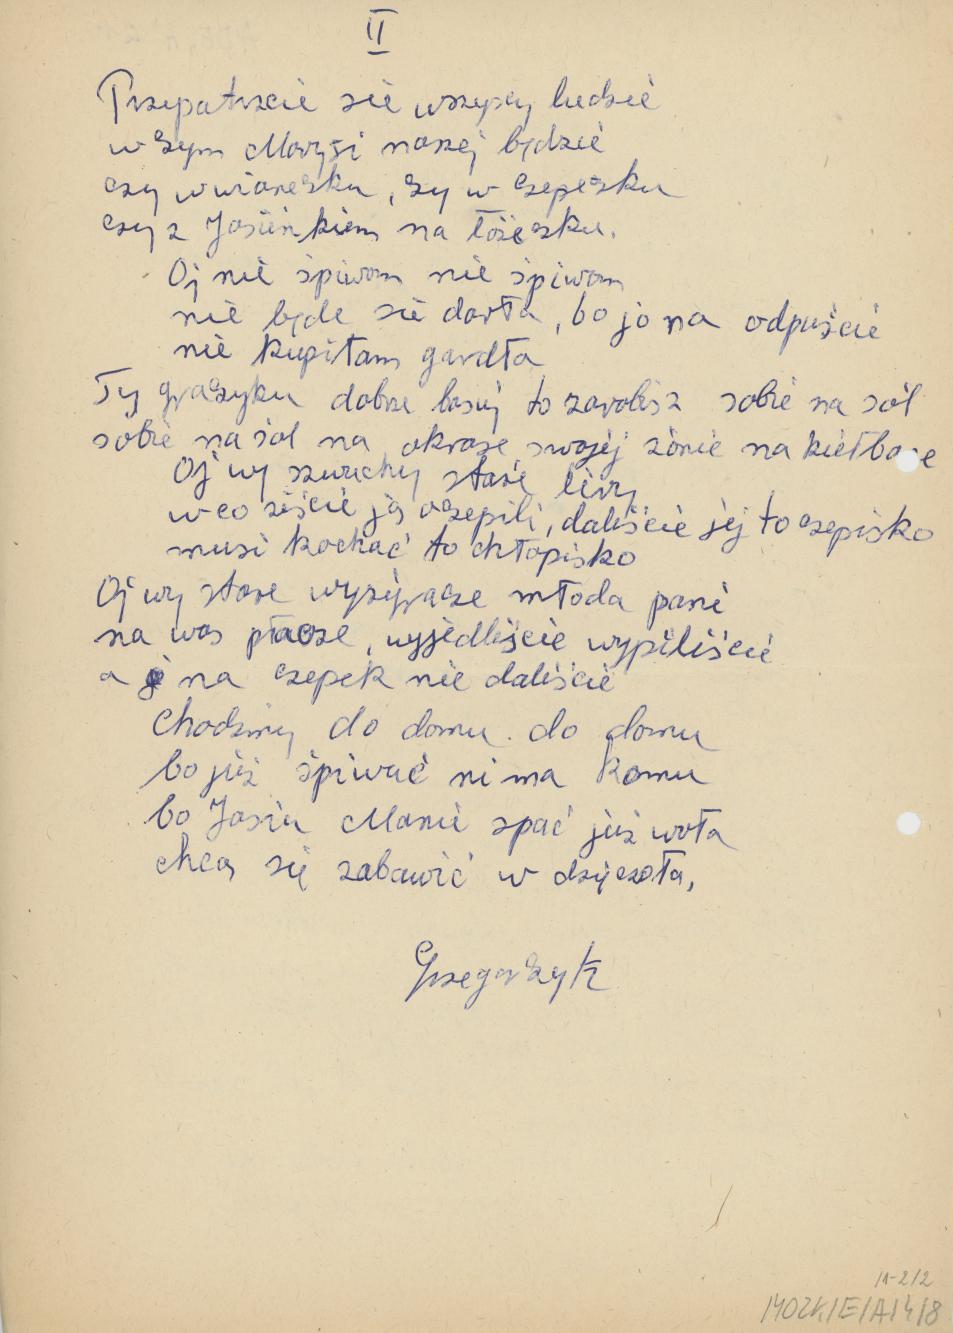 II
Przepatrzcie sie wszyscy ludzie
w czym Marysi naszej będzie
czy w wianeczku, czy w czepeczku
czy z Jasieńkiem na łóżeczku.
Oj nie śpiwom nie śpiwom
nie będe sie darła, bo jo na odpuście
nie kupiłam gardła
Ty graczyku dobrze basuj to zarobisz sobie na sól
sobie na sól na okrase swojéj żonie na kiełbase
Oj wy stare
w co żeście ją oczepili, daliście jej to czepisko
musi kochać to chłopisko
Oj wy stare wyżyracze młoda pani
na was płacze, wyjedliście wypiliście
a na czepek nie daliście
Chodźmy do domu do domu
bo już śpiwać ni ma komu
bo Jasiu Manie spać już woła
chcą się zabawić w dzięcoła,
Grzegorzyk
11-2/2
MOZK/E/A/4/8